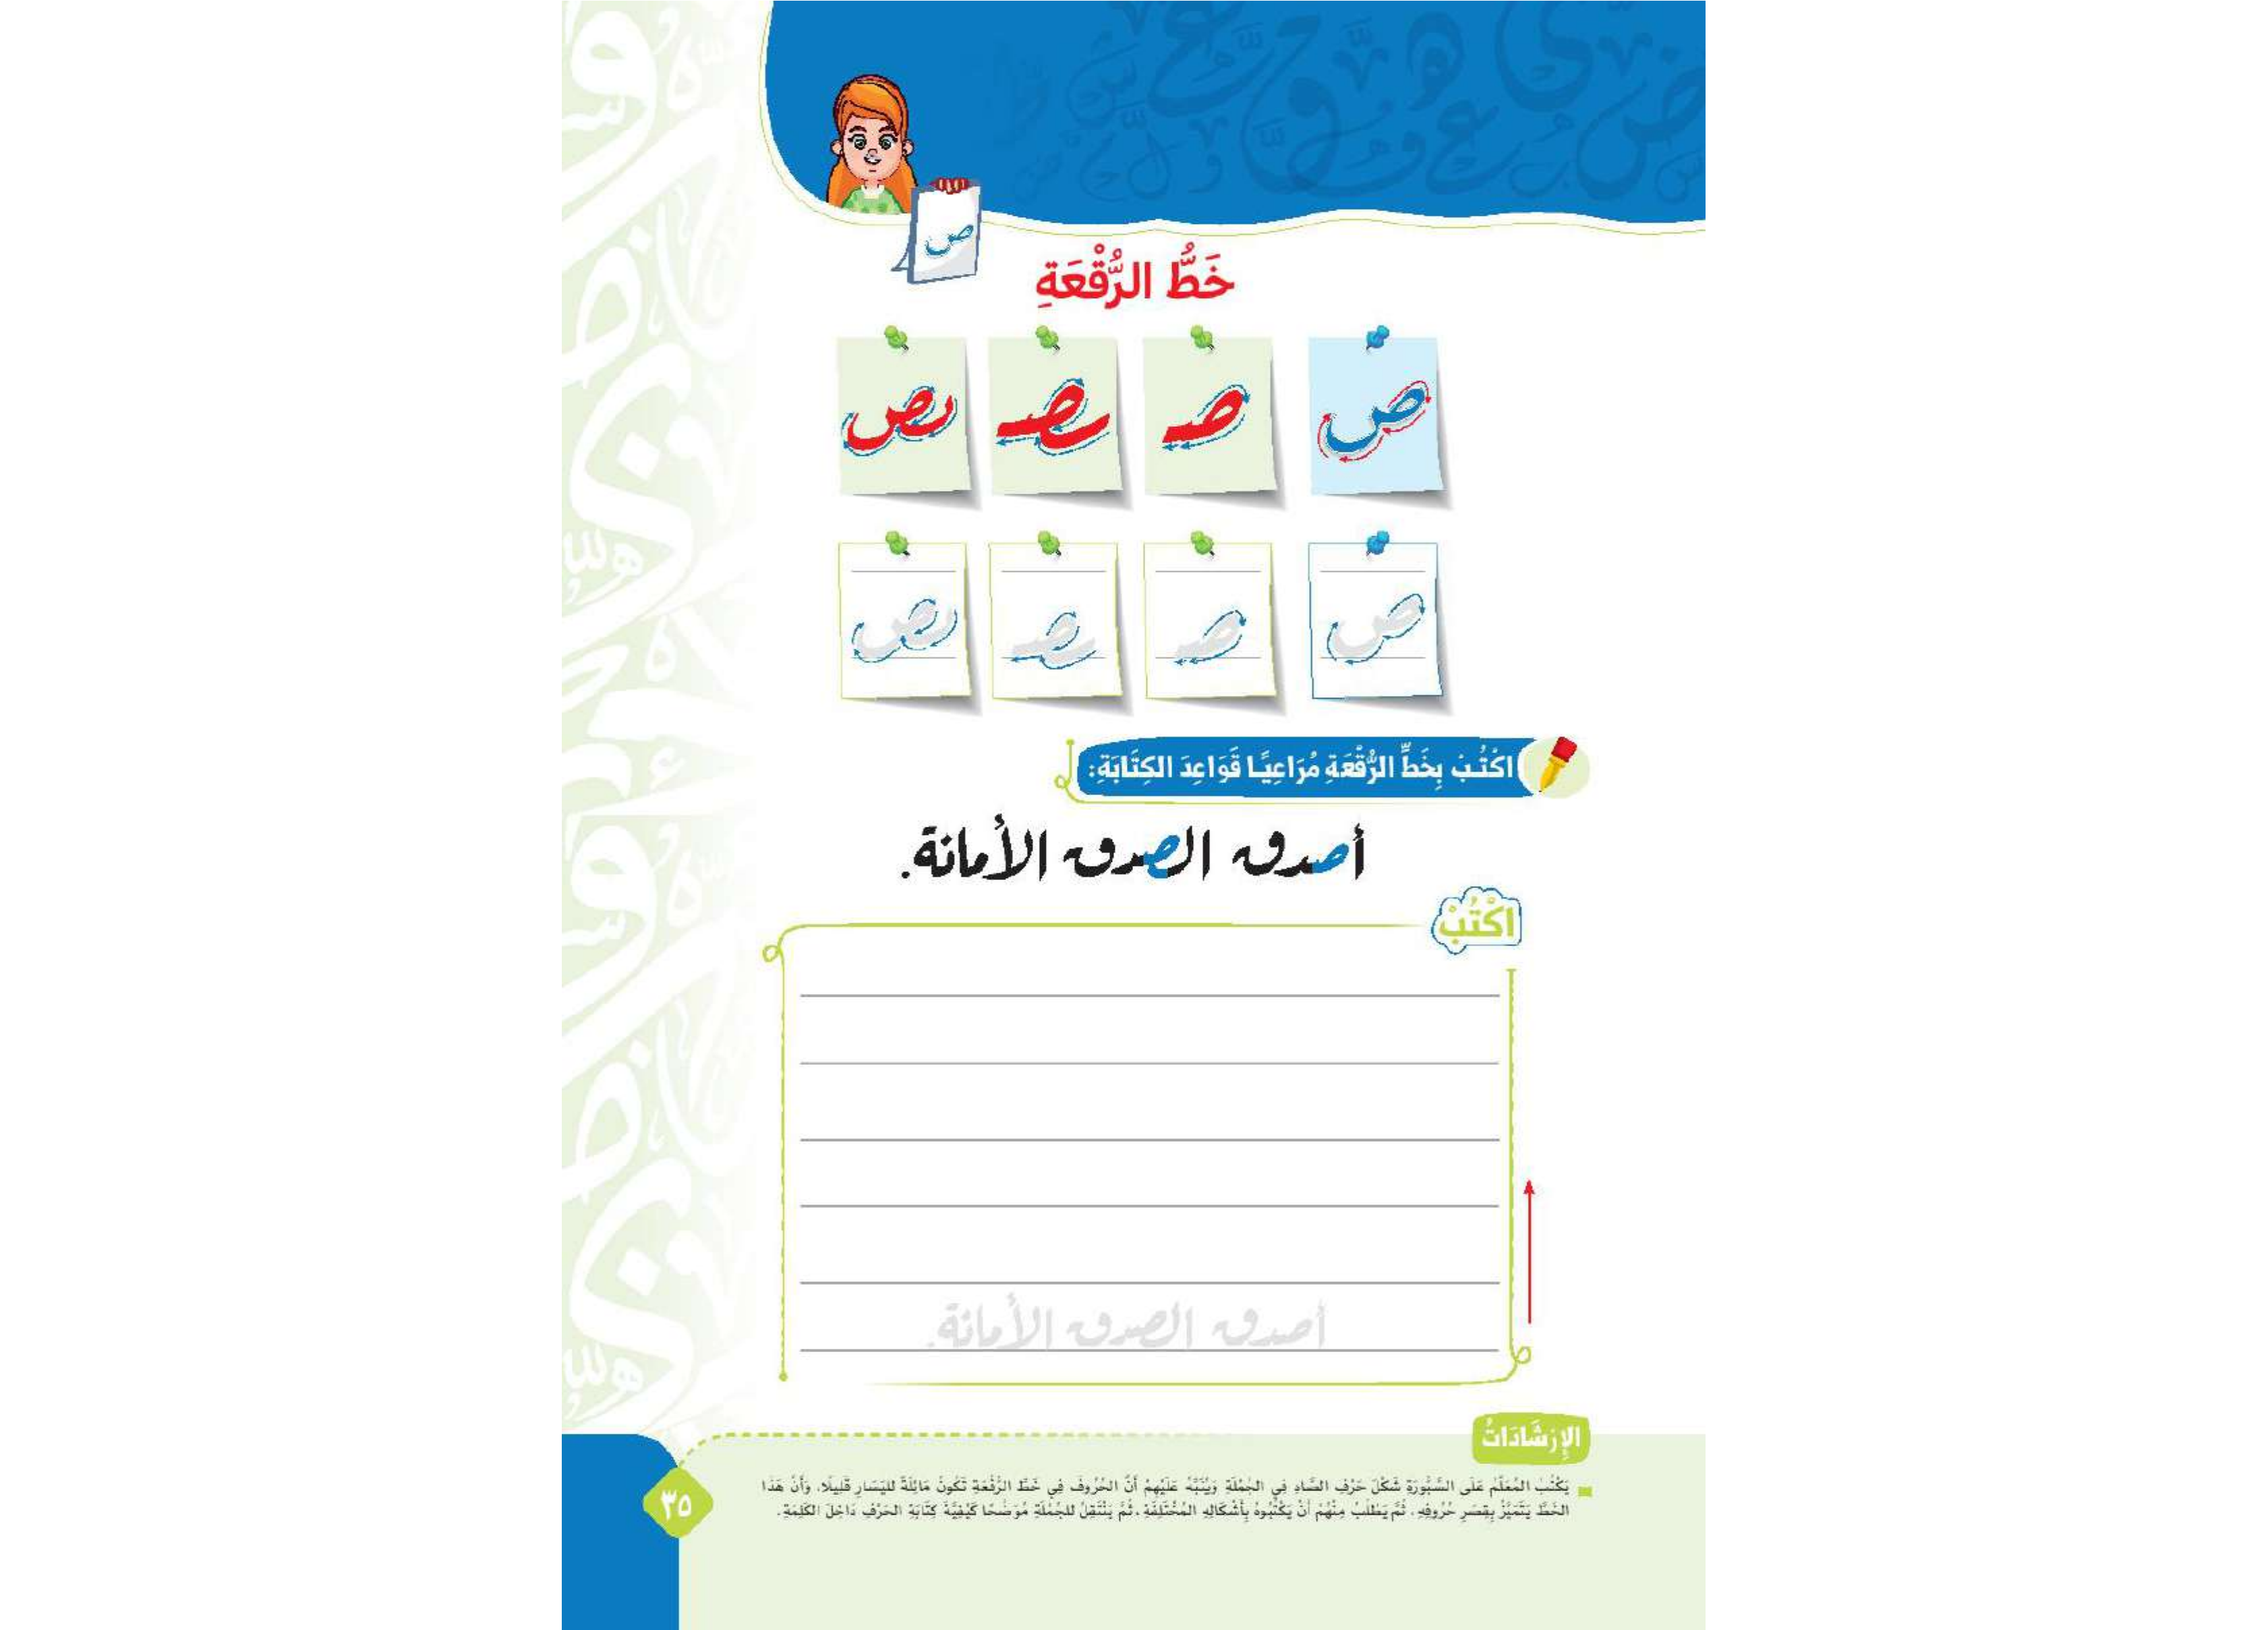 ص
خَطُّ الرُّقْعَةِ
ص صـ ـصـ ـص
ص صـ ـصـ ـص
اكْتُبْ بِخَطِّ الرُّقْعَةِ مُرَاعِيًا قَوَاعِدَ الكِتَابَةِ:
أصدق الصدق الأمانة.
اكْتُبْ
أصدق الصدق الأمانة.
الإِرْشَادَاتُ
يَكْتُبُ المُعَلِّمُ عَلَى السَّبُّورَةِ شَكْلَ حَرْفِ الصَّادِ فِي الجُمْلَةِ وَيُنَبِّهُ عَلَيْهِمْ أَنَّ الحُرُوفَ فِي خَطِّ الرُّقْعَةِ تَكُونُ مَائِلَةً لليَسَارِ قَلِيلًا، وَأَنَّ هَذَا
الخَطَّ يَتَمَيَّزُ بِقِصَرِ حُرُوفِهِ، ثُمَّ يَطْلُبُ مِنْهُمْ أَنْ يَكْتُبُوهُ بِأَشْكَالِهِ المُخْتَلِفَةِ، ثُمَّ يَنْتَقِلُ للجُمْلَةِ مُوَضِّحًا كَيْفِيَّةَ كِتَابَةِ الحَرْفِ دَاخِلَ الكَلِمَةِ.
٣٥